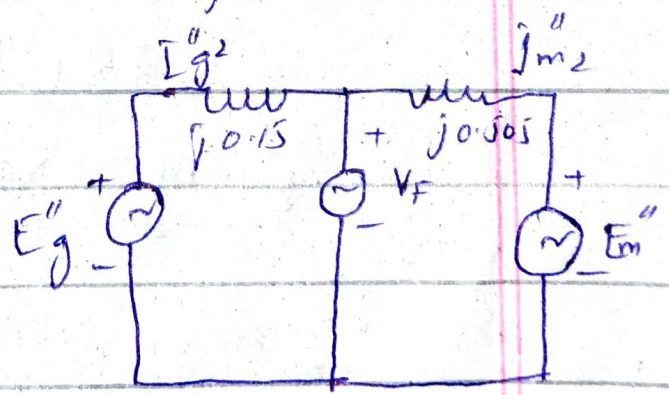 I"g2 I"m2
j0.15 j0.505
+ + +
E"g VF Em"
- - -